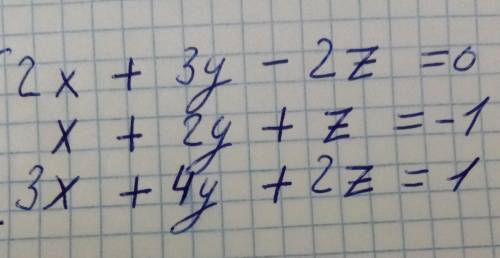 2x + 3y - 2z = 0
x + 2y + z = -1
3x + 4y + 2z = 1